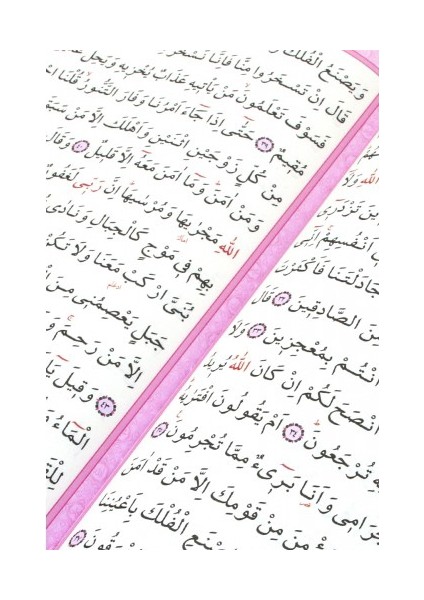 اللهُ وَلَا
ينَ تَزْدَرِى
اَنْفُسِهِمْ اِنِّى
جَادَلْتَنَا فَاَكْثَرْتَ
نَ الصَّادِقِينَ ﴿٣٢﴾ قَالَ
اَنْتُمْ بِمُعْجِزِينَ ﴿٣٣﴾ وَلَا
اَنْصَحَ لَكُمْ اِنْ كَانَ اللهُ يُرِيدُ
هِ تُرْجَعُونَ ﴿٣٤﴾ اَمْ يَقُولُونَ افْتَرٰيهُ
جْرَامِى وَاَنَا بَرِىءٌ مِمَّا تُجْرِمُونَ ﴿٣٥﴾
مِنْ قَوْمِكَ اِلَّا مَنْ قَدْ اٰمَنَ
الْفُلْكَ بِاَعْيُنِنَا
وَيَصْنَعُ الْفُلْكَ
قَالَ اِنْ تَسْخَرُوا مِنَّا فَاِنَّا نَسْخَرُ
فَسَوْفَ تَعْلَمُونَ مَنْ يَاْتِيهِ عَذَابٌ يُخْزِيهِ وَيَحِلُّ
مُقِيمٌ ﴿٣٩﴾ حَتّٰى اِذَا جَاءَ اَمْرُنَا وَفَارَ التَّنُّورُ قُلْنَا
مِنْ كُلٍّ زَوْجَيْنِ اثْنَيْنِ وَاَهْلَكَ اِلَّا مَنْ سَبَقَ
وَمَنْ اٰمَنَ وَمَا اٰمَنَ مَعَهُ اِلَّا قَلِيلٌ ﴿٤٠﴾ وَقَالَ
اللهِ مَجْرٰيهَا وَمُرْسٰيهَا اِنَّ رَبِّى لَغَفُورٌ
بِهِمْ فِى مَوْجٍ كَالْجِبَالِ وَنَادٰى
بُنَىَّ ارْكَبْ مَعَنَا وَلَا تَكُنْ
جَبَلٍ يَعْصِمُنِى مِنَ
اِلَّا مَنْ رَحِمَ وَ
﴿٤٣﴾ وَقِيلَ يَا
الْمَاءُ